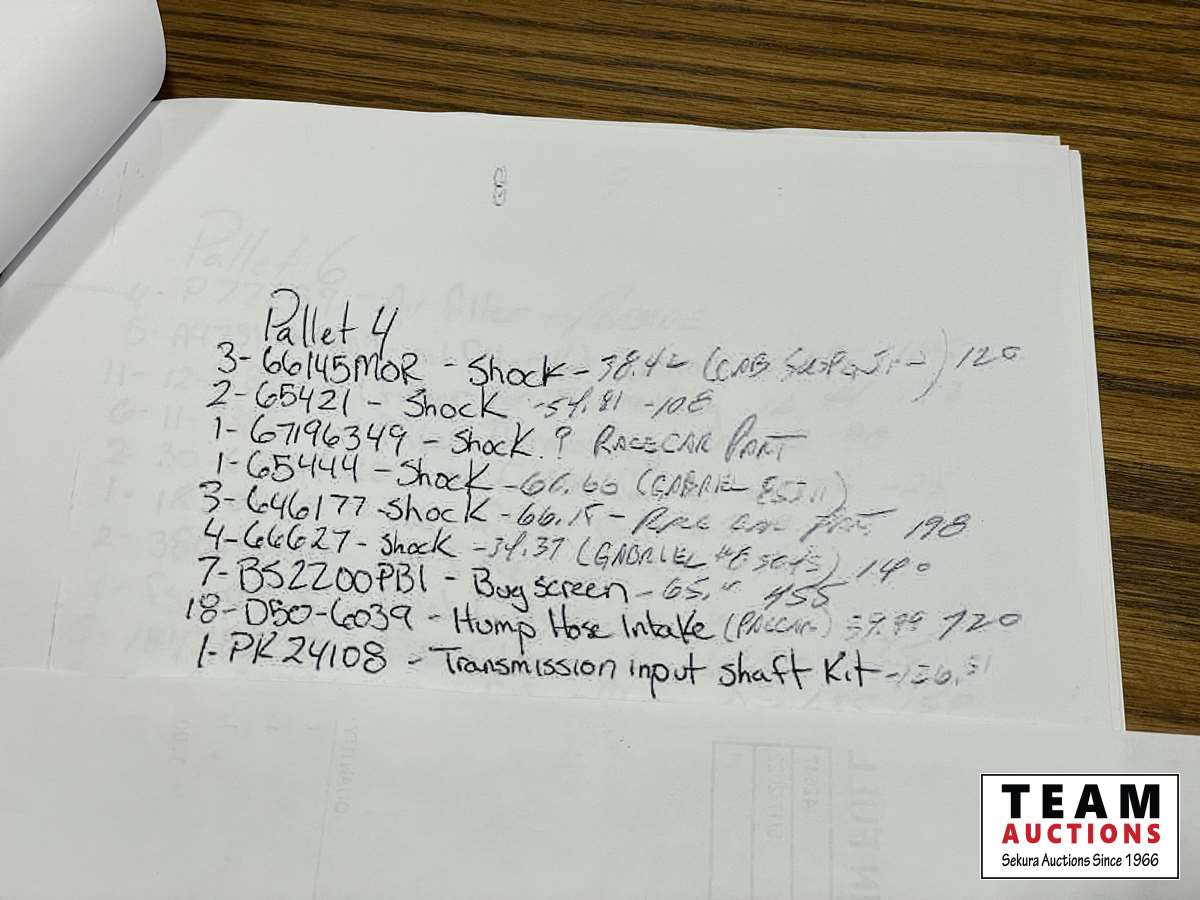 Pallet 4
3-66145MOR - Shock - 38.42 (CAB SUSPENSION) 120
2-65421 - Shock -54.81 -108
1-67196349 - Shock. ? RACECAR PART
1-65444 - Shock -66.66 (GABRIEL
3-646177-Shock -66.18- RACE CAR PART 198
4-66627- Shock -34.37 (GABRIEL 140
7-BS2200PB1 - Bug screen - 65. 455
18-D50-6039 - Hump Hose Intake (PACCAR) 39.99 720
1-PK24108 - Transmission input shaft Kit -136.51
Pallet 6
QUANTITY
TEAM
AUCTIONS
Sekura Auctions Since 1966